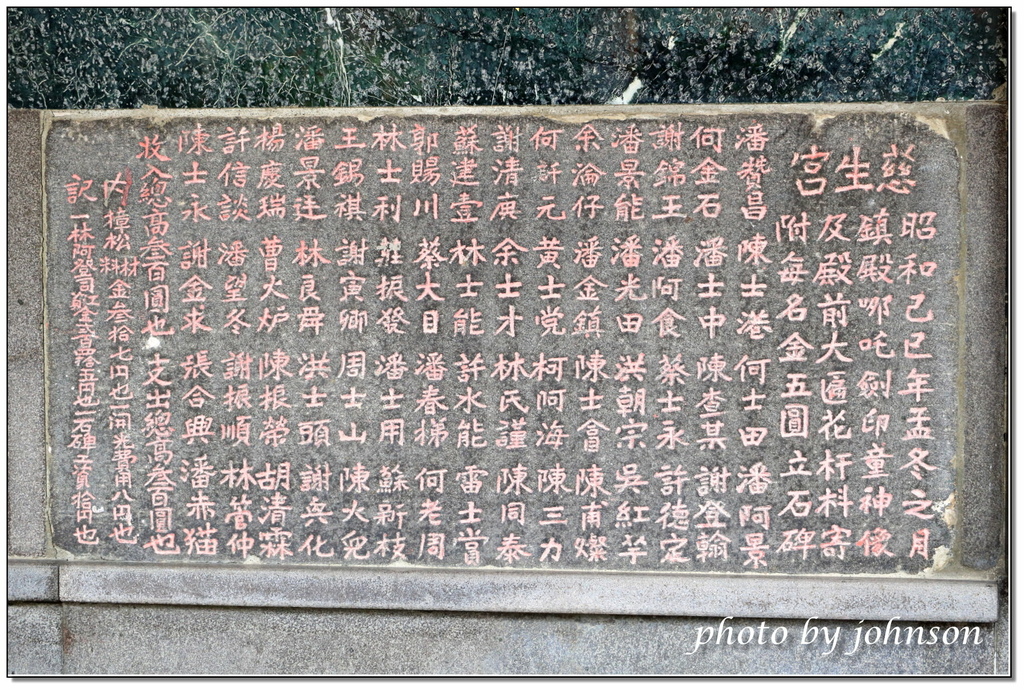 慈生宮
昭和己巳年孟冬之月
鎮殿哪吒劍印童神像
及殿前大匾花杆料寄
附每名金五圓立石碑
潘贊昌 陳士港 何士田 潘阿景
何金石 潘士中 陳查某 謝登翰
謝錦王 潘阿食 蔡士永 許德定
潘景能 潘光田 洪朝宗 吳紅芋
余淪仔 潘金鎮 陳士會 陳甫燦
何訐元 黃士党 柯阿海 陳三力
謝清庚 余士才 林氏謹 陳同泰
蘇建壹 林士能 許水能 雷士賞
郭賜川 蔡大目 潘春梯 何老周
林士利 莊振發 潘士用 蘇新枝
王錫祺 謝寅卿 周士山 陳火兜
潘景廷 林良舜 洪士頭 謝與化
楊慶瑞 曹火炉 陳振榮 胡清霖
許信談 潘望冬 謝振順 林管仲
陳士永 謝金求 張合興 潘赤猫
收入總高叁百圓也 支出總高叁百圓也
內 樟松材料金叁拾七円也 一開光費用八円也
記 一林阿 司 石碑 拾円也
photo by johnson